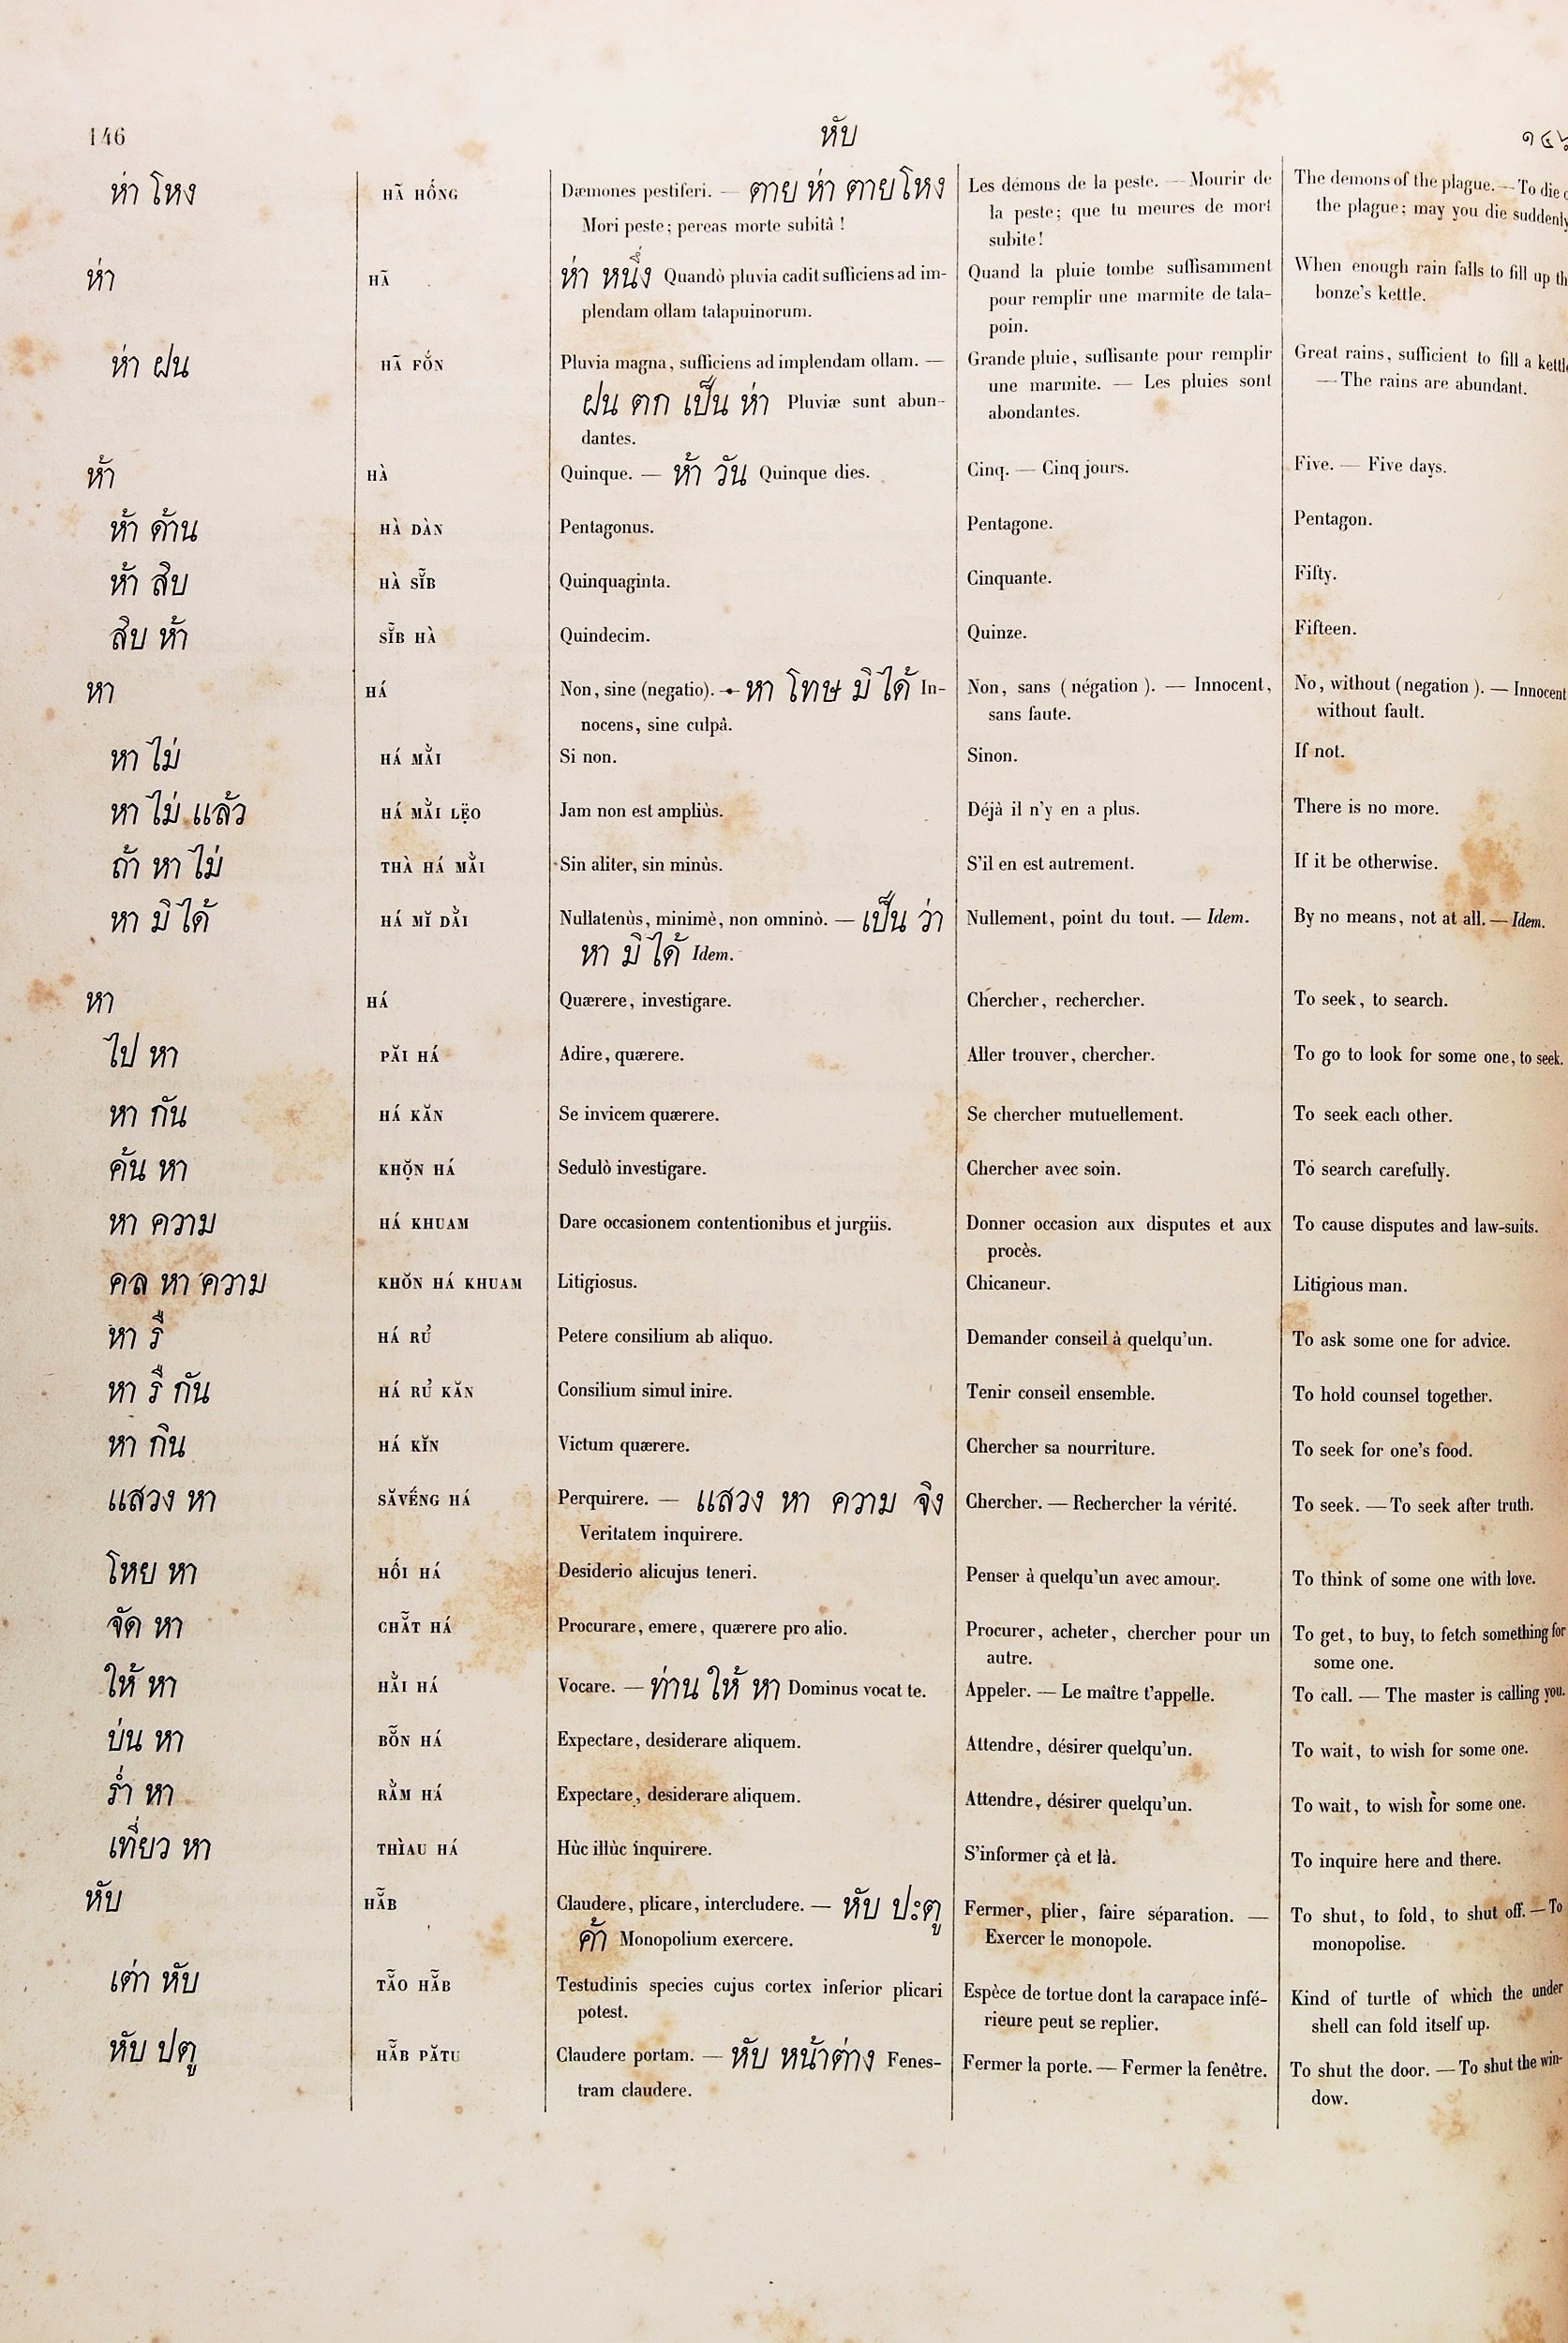 146
หับ
ห่า โหง
HÃ HỐNG
Dæmones pestiferi. — ตาย ห่า ตายโหง
Mori peste; pereas morte subità !
Les démons de la peste. — Mourir de
la peste; que tu meures de mort
subite!
The demons of the plague. — To die
the plague; may you die suddenly
ห่า
HÃ
ห่า หนึ่ง Quandò pluvia cadit sufficiens ad im-
plendam ollam talapuinorum.
Quand la pluie tombe suffisamment
pour remplir une marmite de tala-
poin.
When enough rain falls to fill up
bonze's kettle.
ห่า ฝน
HÃ FỐN
Pluvia magna, sufficiens ad implendam ollam. —
ฝน ตก เป็น ห่า Pluviæ sunt abun-
dantes.
Grande pluie, suffisante pour remplir
une marmite. — Les pluies sont
abondantes.
Great rains, sufficient to fill a kettle
— The rains are abundant.
ห้า
HÀ
Quinque. — ห้า วัน Quinque dies.
Cinq. — Cinq jours.
Five. — Five days.
ห้า ด้าน
HÀ DÀN
Pentagonus.
Pentagone.
Pentagon.
ห้า สิบ
HÀ SĬ̃B
Quinquaginta.
Cinquante.
Fifty.
สิบ ห้า
SĬ̃B HÀ
Quindecim.
Quinze.
Fifteen.
หา
HÁ
Non, sine (negatio). — หา โทษ มิ ได้ In-
nocens, sine culpâ.
Non, sans (négation). — Innocent,
sans faute.
No, without (negation). — Innocent
without fault.
หา ไม่
HÁ MẰI
Si non.
Sinon.
If not.
หา ไม่ แล้ว
HÁ MẰI LẸ̈O
Jam non est ampliùs.
Déjà il n'y en a plus.
There is no more.
ถ้า หา ไม่
THÀ HÁ MẰI
Sin aliter, sin minùs.
S'il en est autrement.
If it be otherwise.
หา มิ ได้
HÁ MĬ DẰI
Nullatenùs, minimè, non omninò. — เป็น ว่า
หา มิ ได้ Idem.
Nullement, point du tout. — Idem.
By no means, not at all. — Idem.
หา
HÁ
Quærere, investigare.
Chercher, rechercher.
To seek, to search.
ไป หา
PĂI HÁ
Adire, quærere.
Aller trouver, chercher.
To go to look for some one, to seek.
หา กัน
HÁ KĂN
Se invicem quærere.
Se chercher mutuellement.
To seek each other.
ค้น หา
KHỌ̆N HÁ
Sedulò investigare.
Chercher avec soin.
To search carefully.
หา ความ
HÁ KHUAM
Dare occasionem contentionibus et jurgiis.
Donner occasion aux disputes et aux
procès.
To cause disputes and law-suits.
คล หา ความ
KHŎN HÁ KHUAM
Litigiosus.
Chicaneur.
Litigious man.
หา รื
HÁ RỦ
Petere consilium ab aliquo.
Demander conseil à quelqu'un.
To ask some one for advice.
หา รื กัน
HÁ RỦ KĂN
Consilium simul inire.
Tenir conseil ensemble.
To hold counsel together.
หา กิน
HÁ KĬN
Victum quærere.
Chercher sa nourriture.
To seek for one's food.
แสวง หา
SĂVẾNG HÁ
Perquirere. — แสวง หา ความ จิง
Veritatem inquirere.
Chercher. — Rechercher la vérité.
To seek. — To seek after truth.
โหย หา
HỐI HÁ
Desiderio alicujus teneri.
Penser à quelqu'un avec amour.
To think of some one with love.
จัด หา
CHẴT HÁ
Procurare, emere, quærere pro alio.
Procurer, acheter, chercher pour un
autre.
To get, to buy, to fetch something for
some one.
ให้ หา
HẰI HÁ
Vocare. — ท่าน ให้ หา Dominus vocat te.
Appeler. — Le maître t'appelle.
To call. — The master is calling you.
บ่น หา
BŎ̃N HÁ
Expectare, desiderare aliquem.
Attendre, désirer quelqu'un.
To wait, to wish for some one.
ร่ำ หา
RẰM HÁ
Expectare, desiderare aliquem.
Attendre, désirer quelqu'un.
To wait, to wish for some one.
เที่ยว หา
THÌAU HÁ
Hùc illùc inquirere.
S'informer çà et là.
To inquire here and there.
หับ
HẴB
Claudere, plicare, intercludere. — หับ ปะตู
ค้า Monopolium exercere.
Fermer, plier, faire séparation. —
Exercer le monopole.
To shut, to fold, to shut off. — To
monopolise.
เต่า หับ
TẴO HẴB
Testudinis species cujus cortex inferior plicari
potest.
Espèce de tortue dont la carapace infé-
rieure peut se replier.
Kind of turtle of which the under
shell can fold itself up.
หับ ปตู
HẴB PĂTU
Claudere portam. — หับ หน้าต่าง Fenes-
tram claudere.
Fermer la porte. — Fermer la fenêtre.
To shut the door. — To shut the win-
dow.